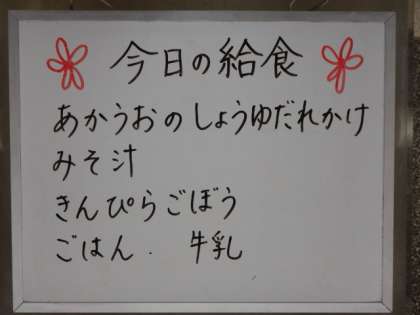 今日の給食
あかうおのしょうゆだれかけ
みそ汁
きんぴらごぼう
ごはん. 牛乳